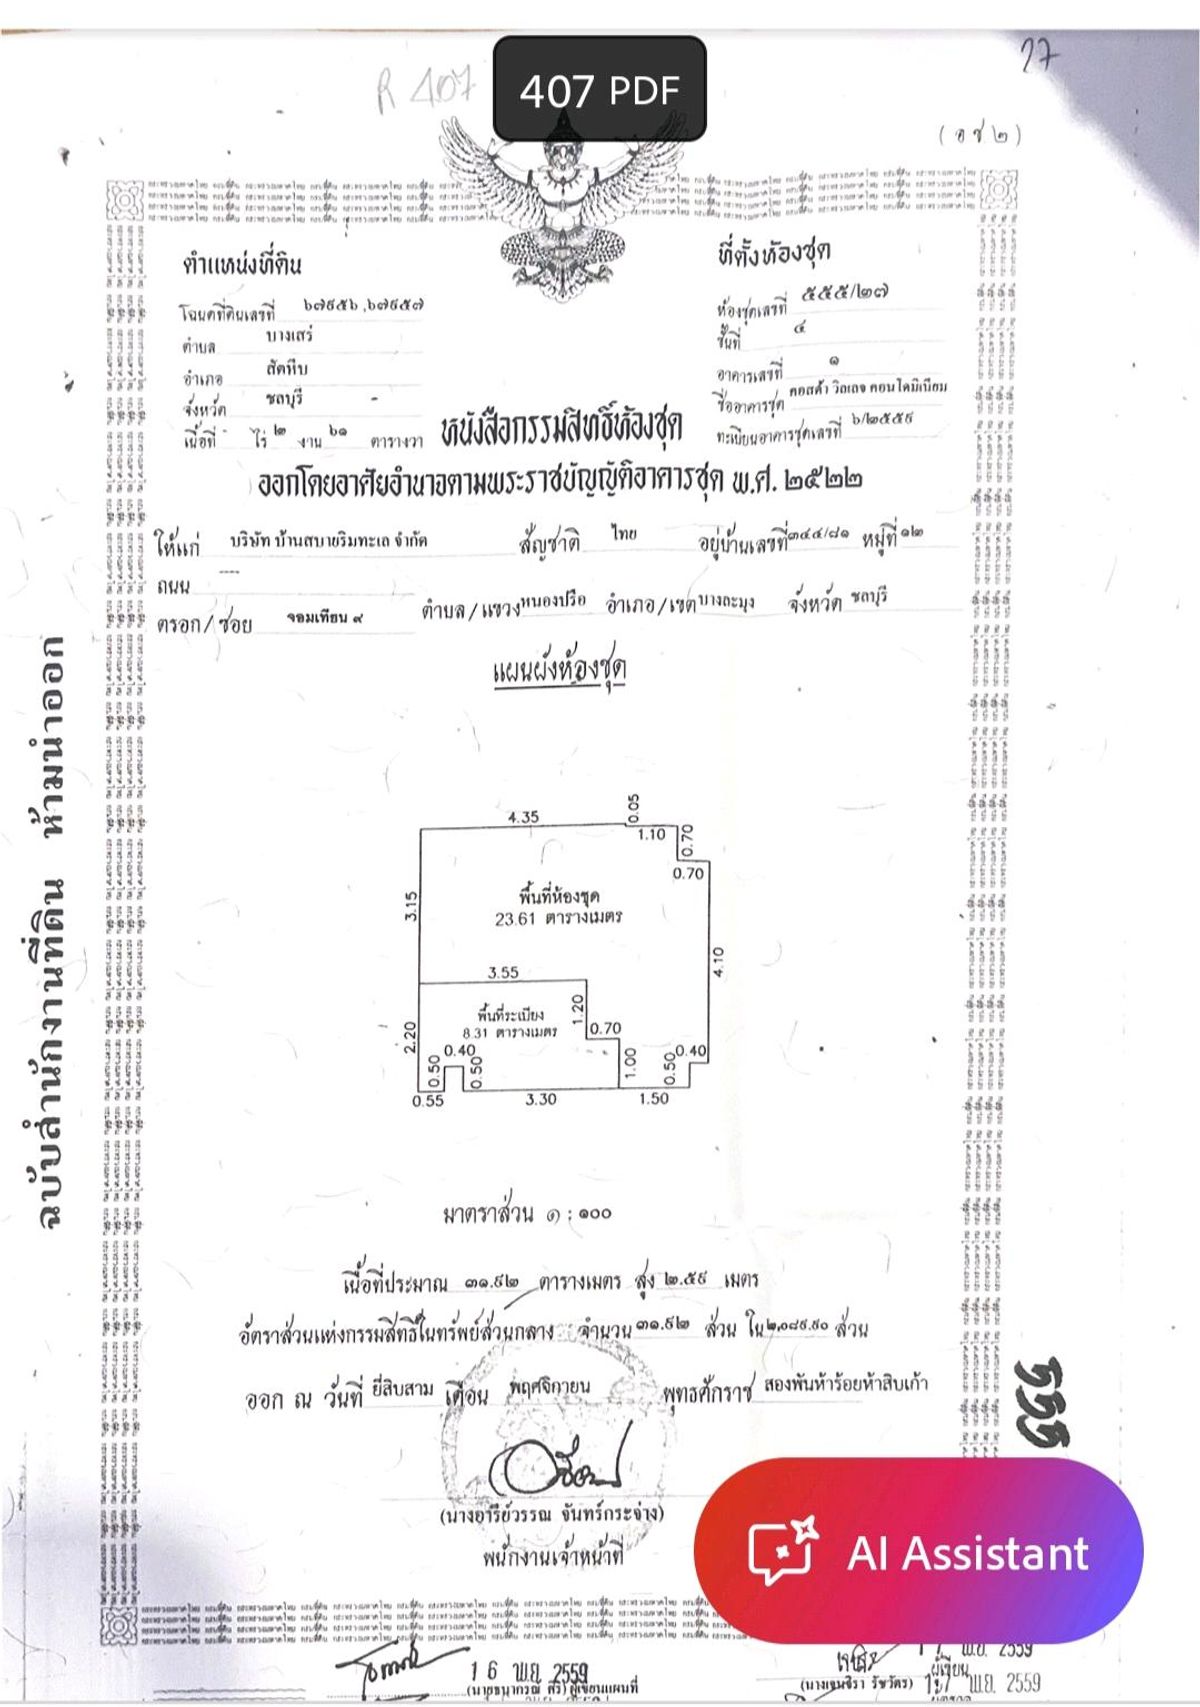 27
R 407
407 PDF
(อช ๒)
ตำแหน่งที่ดิน
ที่ตั้งห้องชุด
โฉนดที่ดินเลขที่ ๖๗๙๕๖ ,๖๗๙๕๗
ห้องชุดเลขที่ ๕๕๕/๒๗
ตำบล บางเสร่
ชั้นที่ ๔
อำเภอ สัตหีบ
อาคารเลขที่ ๑
จังหวัด ชลบุรี -
ชื่ออาคารชุด คอสต้า วิลเลจ คอนโดมิเนียม
เนื้อที่ - ไร่ ๒ งาน ๖๑ ตารางวา
ทะเบียนอาคารชุดเลขที่ ๖/๒๕๕๙
หนังสือกรรมสิทธิ์ห้องชุด
ออกโดยอาศัยอำนาจตามพระราชบัญญัติอาคารชุด พ.ศ. ๒๕๒๒
ให้แก่ บริษัท บ้านสบายริมทะเล จำกัด สัญชาติ ไทย อยู่บ้านเลขที่ ๓๔๔/๘๑ หมู่ที่ ๑๒
ถนน ---
ตรอก/ซอย จอมเทียน ๙ ตำบล/แขวง หนองปรือ อำเภอ/เขต บางละมุง จังหวัด ชลบุรี
แผนผังห้องชุด
4.35
0.05
1.10
0.70
0.70
พื้นที่ห้องชุด
23.61 ตารางเมตร
3.15
4.10
3.55
1.20
พื้นที่ระเบียง
8.31 ตารางเมตร
0.70
2.20
0.40
0.50
0.50
1.00
0.50
0.40
0.55
3.30
1.50
มาตราส่วน ๑ : ๑๐๐
เนื้อที่ประมาณ ๓๑.๙๒ ตารางเมตร สูง ๒.๕๙ เมตร
อัตราส่วนแห่งกรรมสิทธิ์ในทรัพย์ส่วนกลาง จำนวน ๓๑.๙๒ ส่วน ใน ๒,๐๘๙.๙๐ ส่วน
ออก ณ วันที่ ยี่สิบสาม เดือน พฤศจิกายน พุทธศักราช สองพันห้าร้อยห้าสิบเก้า
(นางอารีย์วรรณ จันทร์กระจ่าง)
พนักงานเจ้าหน้าที่
ฉบับสำนักงานที่ดิน ห้ามนำออก
AI Assistant
16 พ.ย. 2559
17 พ.ย. 2559
ผู้เขียน
17 พ.ย. 2559